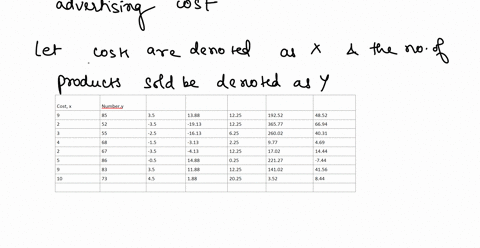 advertising cost
Let costs are denoted as X & the no. of
products sold be denoted as Y
Cost, x Number,y
9 85 3.5 13.88 12.25 192.52 48.52
2 52 -3.5 -19.13 12.25 365.77 66.94
3 55 -2.5 -16.13 6.25 260.02 40.31
4 68 -1.5 -3.13 2.25 9.77 4.69
2 67 -3.5 -4.13 12.25 17.02 14.44
5 86 -0.5 14.88 0.25 221.27 -7.44
9 83 3.5 11.88 12.25 141.02 41.56
10 73 4.5 1.88 20.25 3.52 8.44